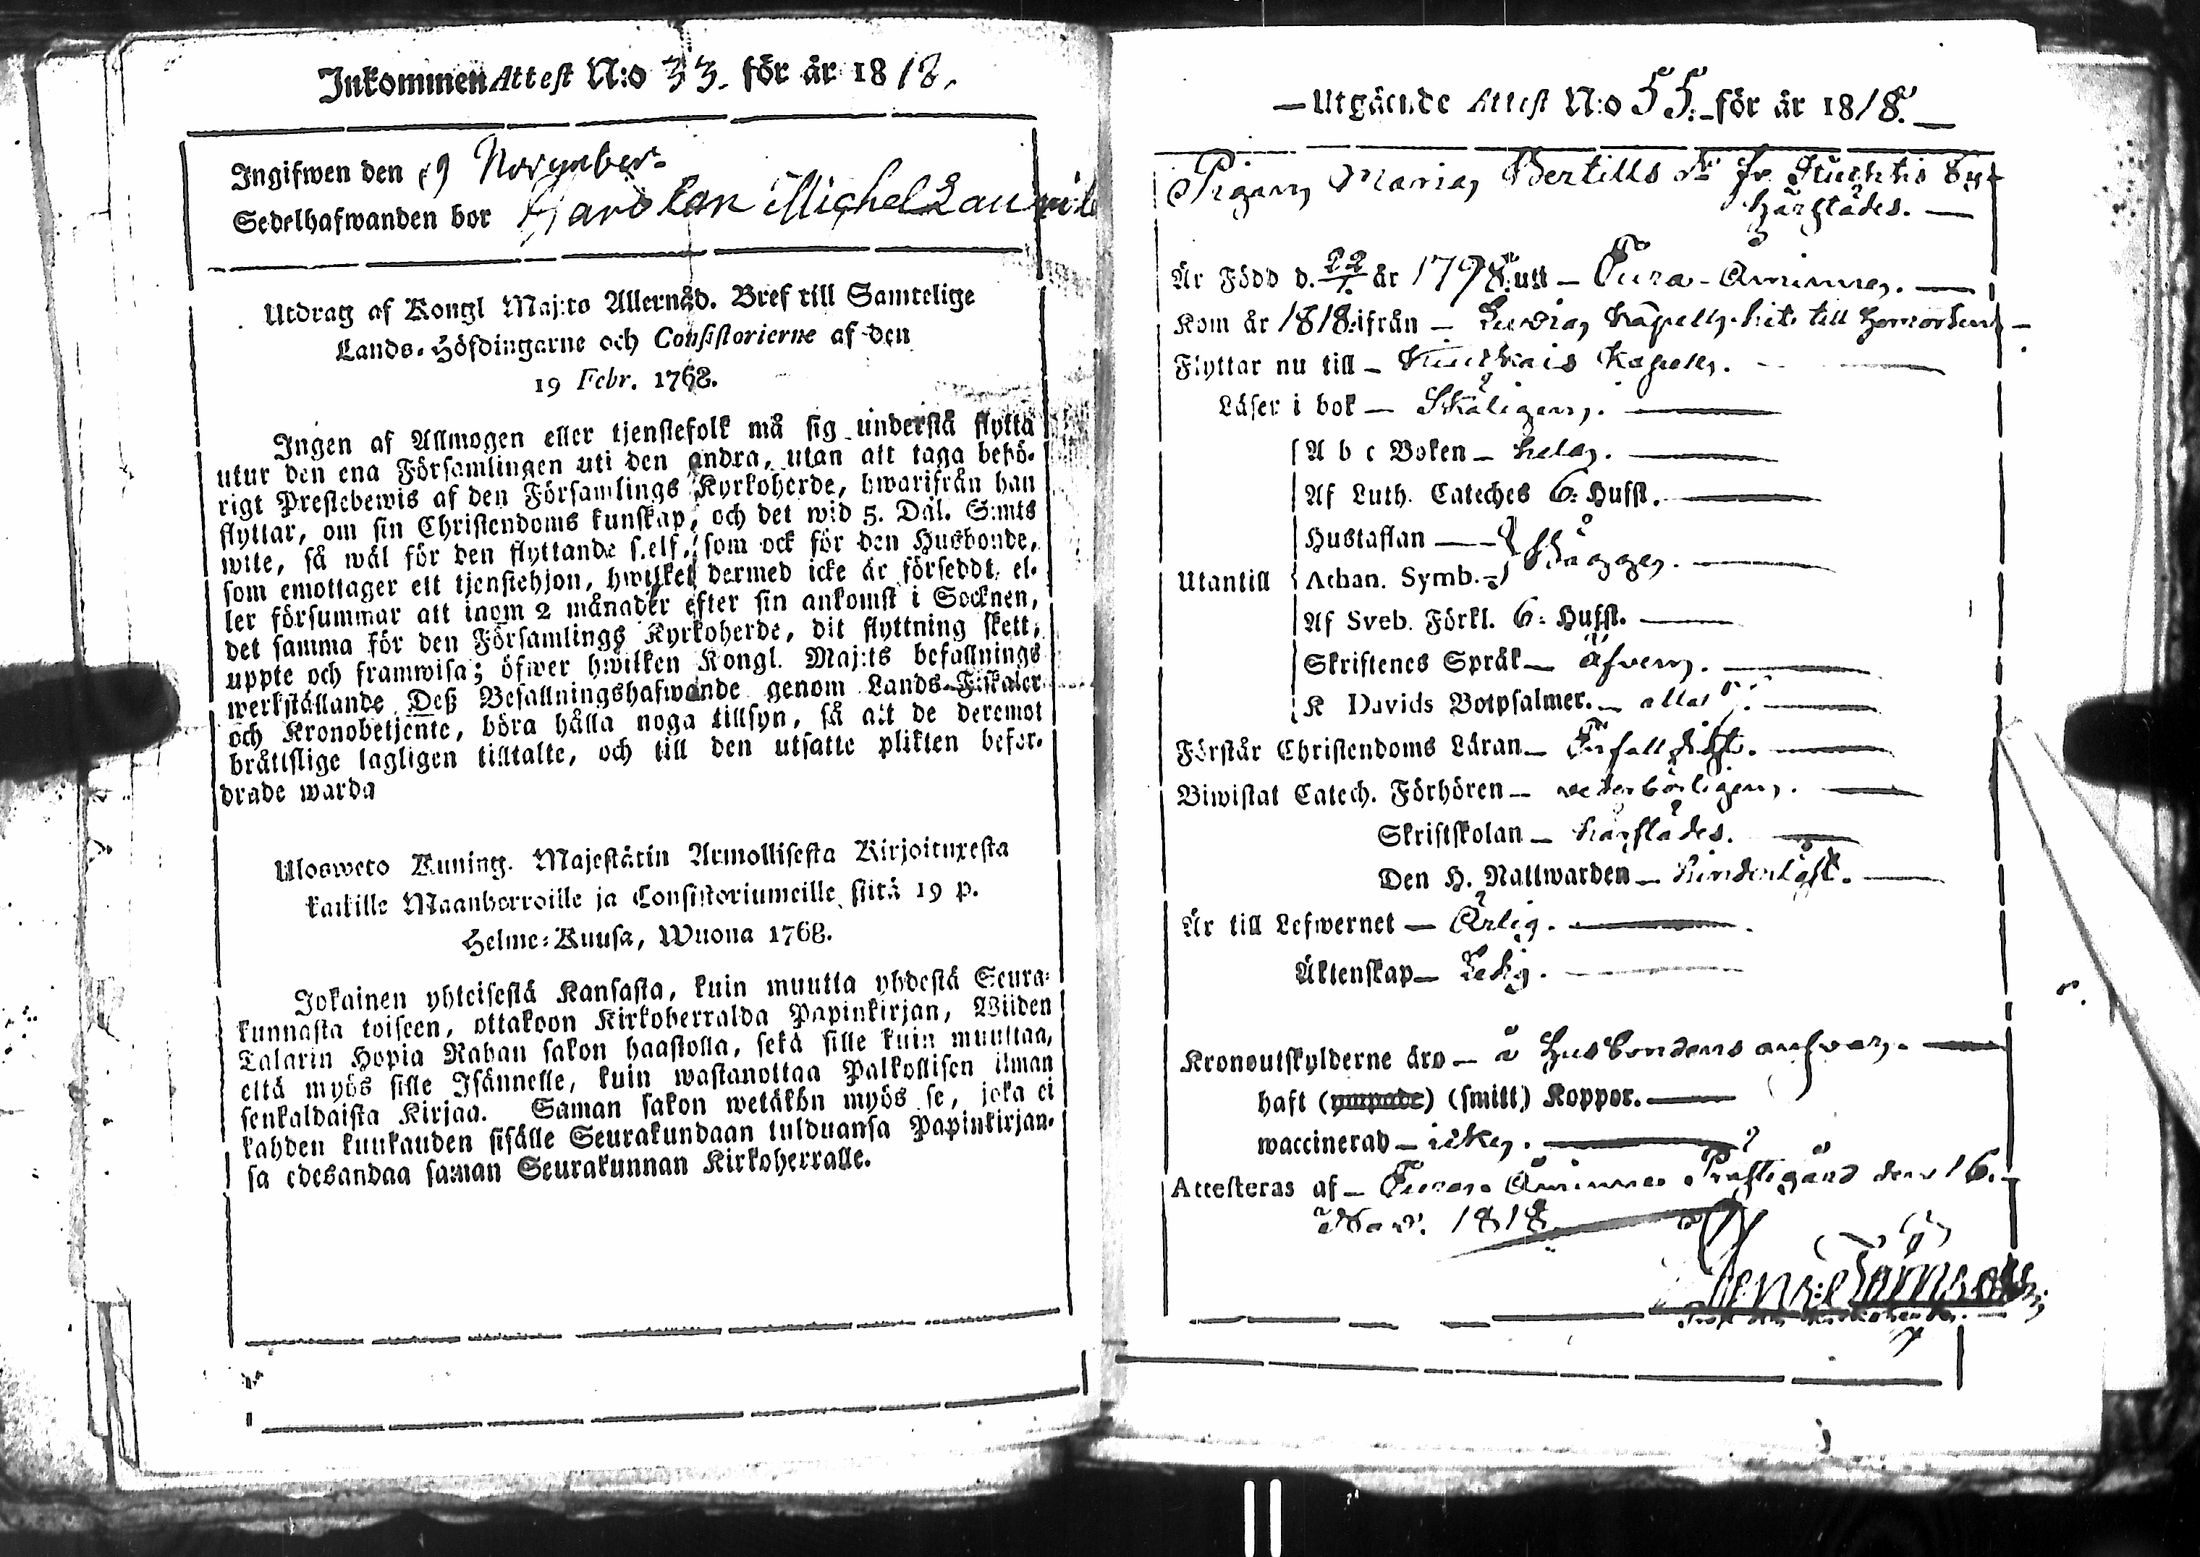 Inkommen Attest N:o 33. för år 1818.
Ingifwen den 19 November
Sedelhafwanden bor Michel
Utdrag af Kongl Maj:ts Allernåd. Bref till Samtelige
Lands-Höfdingarne och Consistorierne af den
19 Febr. 1768.
Ingen af Allmogen eller tjenstefolk må sig understå flytta
utur den ena Församlingen uti den andra, utan att taga behö-
rigt Prestebewis af den Församlings Kyrkoherde, hwarifrån han
flyttar, om sin Christendoms kunskap, och det wid 5. Dal. S:mts
wite, så wäl för den flyttande self, som ock för den Husbonde,
som emottager ett tjenstehjon, hwilket dermed icke är försedt, el-
ler försummar att inom 2 månader efter sin ankomst i Socknen,
det samma för den Församlings Kyrkoherde, dit flyttning skett,
uppte och framwisa; öfwer hwilken Kongl. Maj:ts befallnings
werkställande Deß Befallningshafwande genom Lands-Fiskaler
och Kronobetjente, böra hålla noga tillsyn, så att de deremot
bråttslige lagligen tilltalte, och till den utsatte plikten befor-
drade warda
Ulosweto Kuning. Majestätin Armollisesta Kirjoituxesta
kaikille Maanherroille ja Consistoriumeille, siitä 19 p.
Helme-Kuusa, Wuona 1768.
Jokainen yhteisestä Kansasta, kuin muutta yhdestä Seura-
kunnasta toiseen, ottakoon Kirkoherralda Papinkirjan, Wiiden
Talarin Hopia Rahan sakon haastolla, sekä sille kuin muuttaa,
että myös sille Isännelle, kuin wastanottaa Palkollisen ilman
senkaldaista Kirjaa. Saman sakon wetäkön myös se, joka ei
kahden kuukauden sisälle Seurakundaan tulduansa Papinkirjan-
sa edesandaa saman Seurakunnan Kirkoherralle.
Utgående Attest N:o 55. för år 1818.
Pigan Maria Bertills dr fr. by
härstädes.
Är Född d. 22/7. år 1798. uti Åminne.
Kom år 1818. ifrån Kapell hit till
Flyttar nu till Kapell.
Läser i bok Skäligen.
A b c Boken hela.
Af Luth. Cateches 6: Hufst.
Hustaflan
Utantill Athan. Symb. Bägge.
Af Sveb. Förkl. 6: Hufst.
Skriftenes Språk äfven.
K Davids Botpsalmer. alla 7.
Förstår Christendoms Läran Enfalldigt.
Biwistat Catech. Förhören vederbörligen.
Skriftskolan härstädes.
Den H. Nattwarden hinderlöst.
Är till Lefwernet Ärlig.
Äktenskap Ledig.
Kronoutskylderne äro å Husbondens answar.
haft (ympade) (smitt) Koppor.
waccinerad icke.
Attesteras af Åminne Prästegård den 16.
Nov. 1818